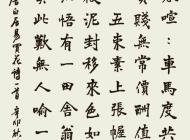 喧：車馬度
賤無常價酬值
五束素上張幄
泥封移來色
悟有一田舍翁
此歎無人喻一
唐白居易買花詩一首 辛卯秋